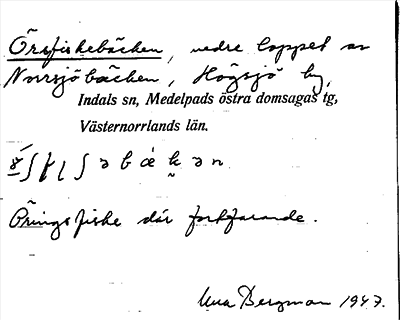 Örsfiskebäcken, nedre loppet av
Norrsjöbäcken, Högsjö by,
Indals sn, Medelpads östra domsagas tg,
Västernorrlands län.
Öringsfiske där fortfarande.
Una Bergman 1947.